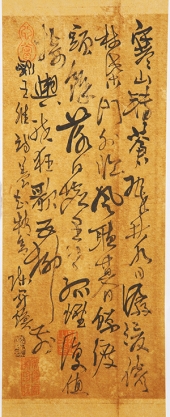 寒山轉蒼翠秋水日潺湲倚
杖柴門外臨風聽暮蟬渡
頭餘落日墟里上孤煙復值
接輿醉狂歌五柳前
王維詩